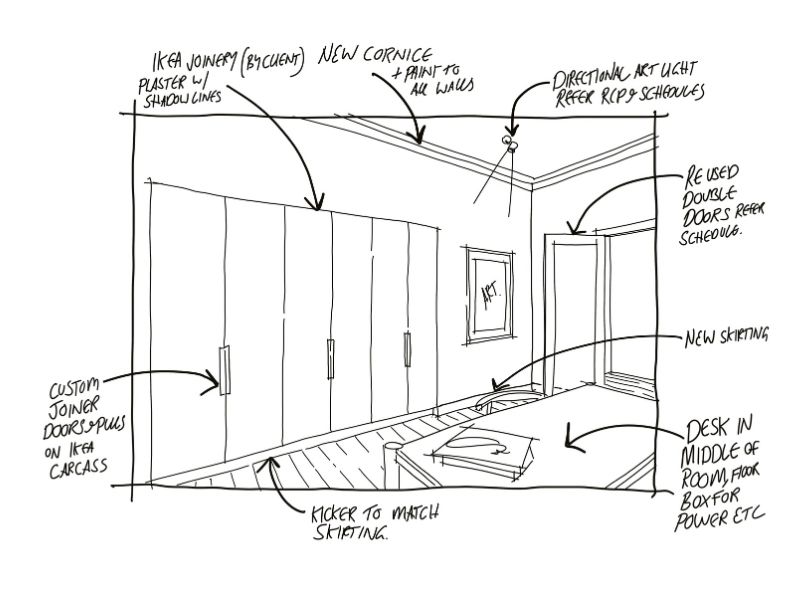 IKEA JOINERY (BY CLIENT)
PLASTER W/
SHADOWLINES
NEW CORNICE
+ PAINT TO
ALL WALLS
DIRECTIONAL ART LIGHT
REFER RCP & SCHEDULES
REUSED
DOUBLE
DOORS REFER
SCHEDULE.
ART.
NEW SKIRTING
CUSTOM
JOINER
DOORS & PULLS
ON IKEA
CARCASS
DESK IN
MIDDLE OF
ROOM, FLOOR
BOX FOR
POWER ETC
KICKER TO MATCH
SKIRTING.